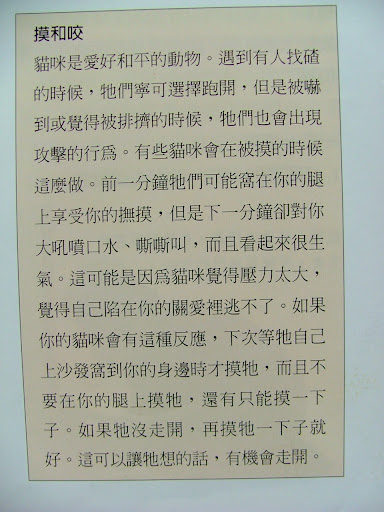 摸和咬
貓咪是愛好和平的動物。遇到有人找碴
的時候，牠們寧可選擇跑開，但是被嚇
到或覺得被排擠的時候，牠們也會出現
攻擊的行爲。有些貓咪會在被摸的時候
這麼做。前一分鐘牠們可能窩在你的腿
上享受你的撫摸，但是下一分鐘卻對你
大吼噴口水、嘶嘶叫，而且看起來很生
氣。這可能是因爲貓咪覺得壓力太大，
覺得自己陷在你的關愛裡逃不了。如果
你的貓咪會有這種反應，下次等牠自己
上沙發窩到你的身邊時才摸牠，而且不
要在你的腿上摸牠，還有只能摸一下
子。如果牠沒走開，再摸牠一下子就
好。這可以讓牠想的話，有機會走開。